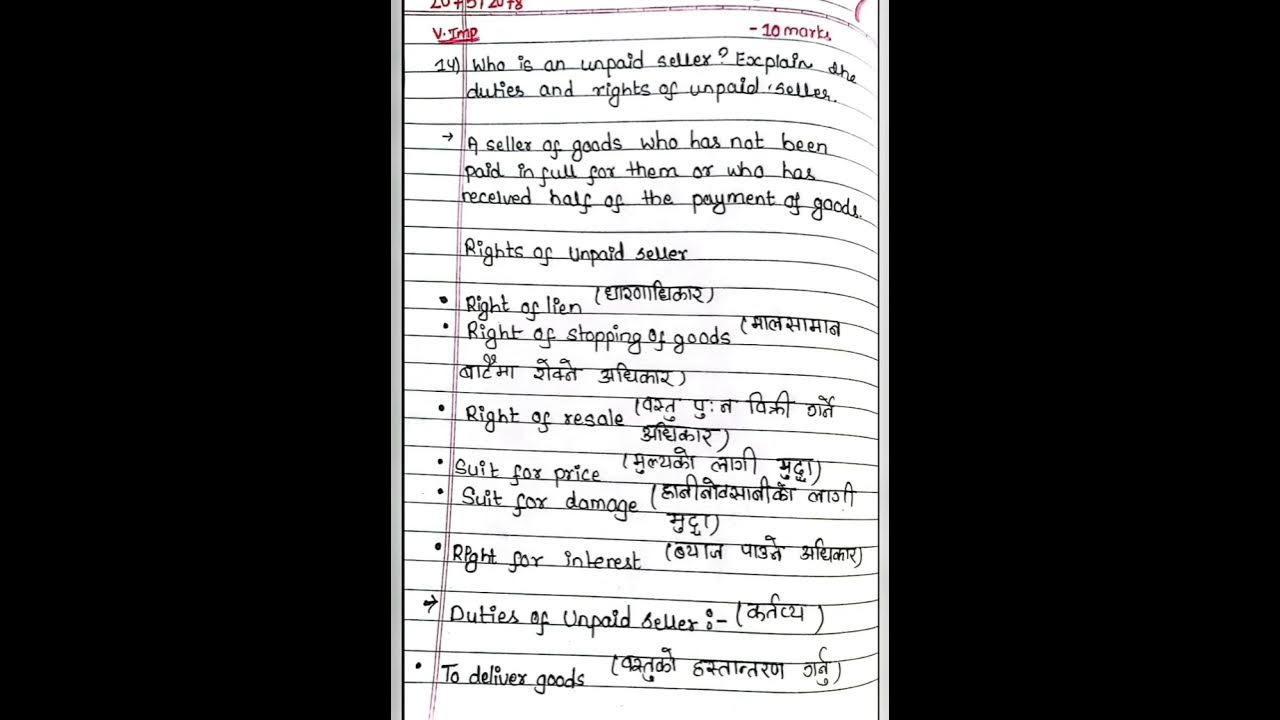 2075/2078
V. Imp - 10 marks
14) Who is an unpaid seller? Explain the
duties and rights of unpaid seller.
→ A seller of goods who has not been
paid in full for them or who has
received half of the payment of goods.
Rights of Unpaid seller
• Right of lien (धारणाधिकार)
• Right of stopping of goods (मालसामान
बाटैमा रोक्ने अधिकार)
• Right of resale (वस्तु पुःन विक्री गर्ने
अधिकार)
• Suit for price (मुल्यको लागी मुद्दा)
• Suit for damage (हानीनोक्सानीको लागी
मुद्दा)
• Right for interest (ब्याज पाउने अधिकार)
→ Duties of Unpaid seller :- (कर्तव्य)
• To deliver goods (वस्तुको हस्तान्तरण गर्नु)